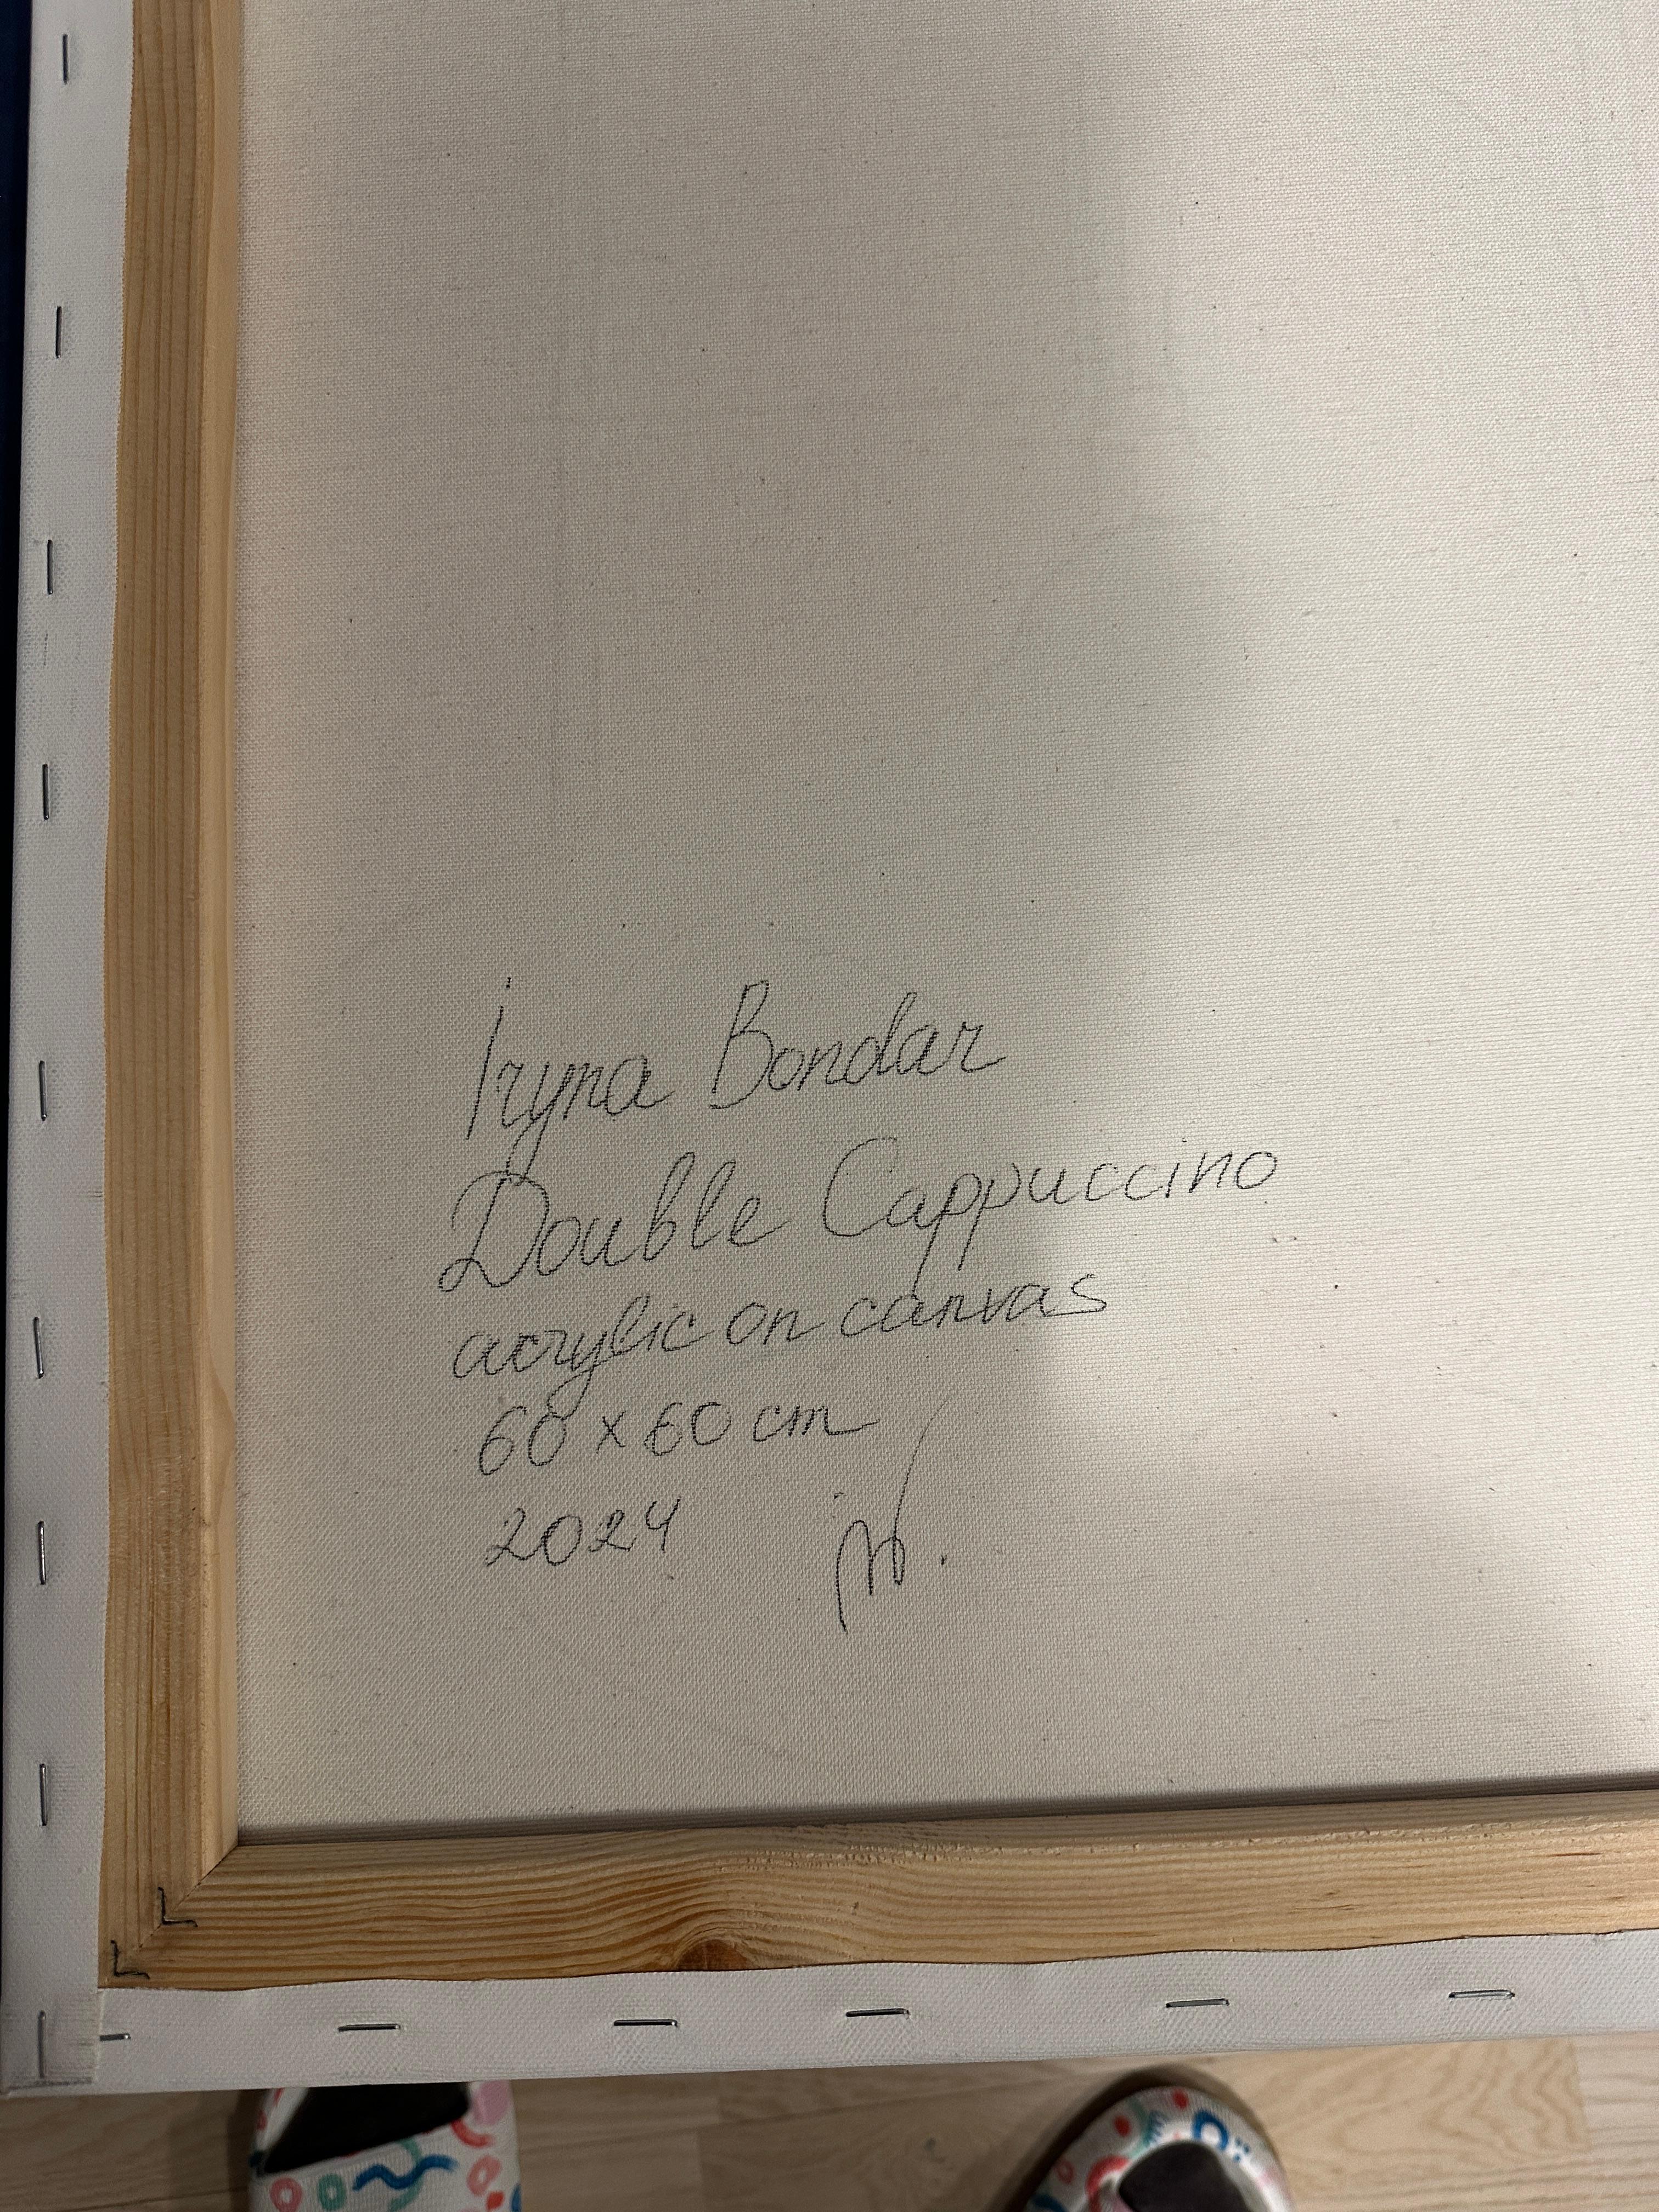 Iryna Bondar
Double Cappuccino
acrylic on canvas
60 x 60 cm
2024